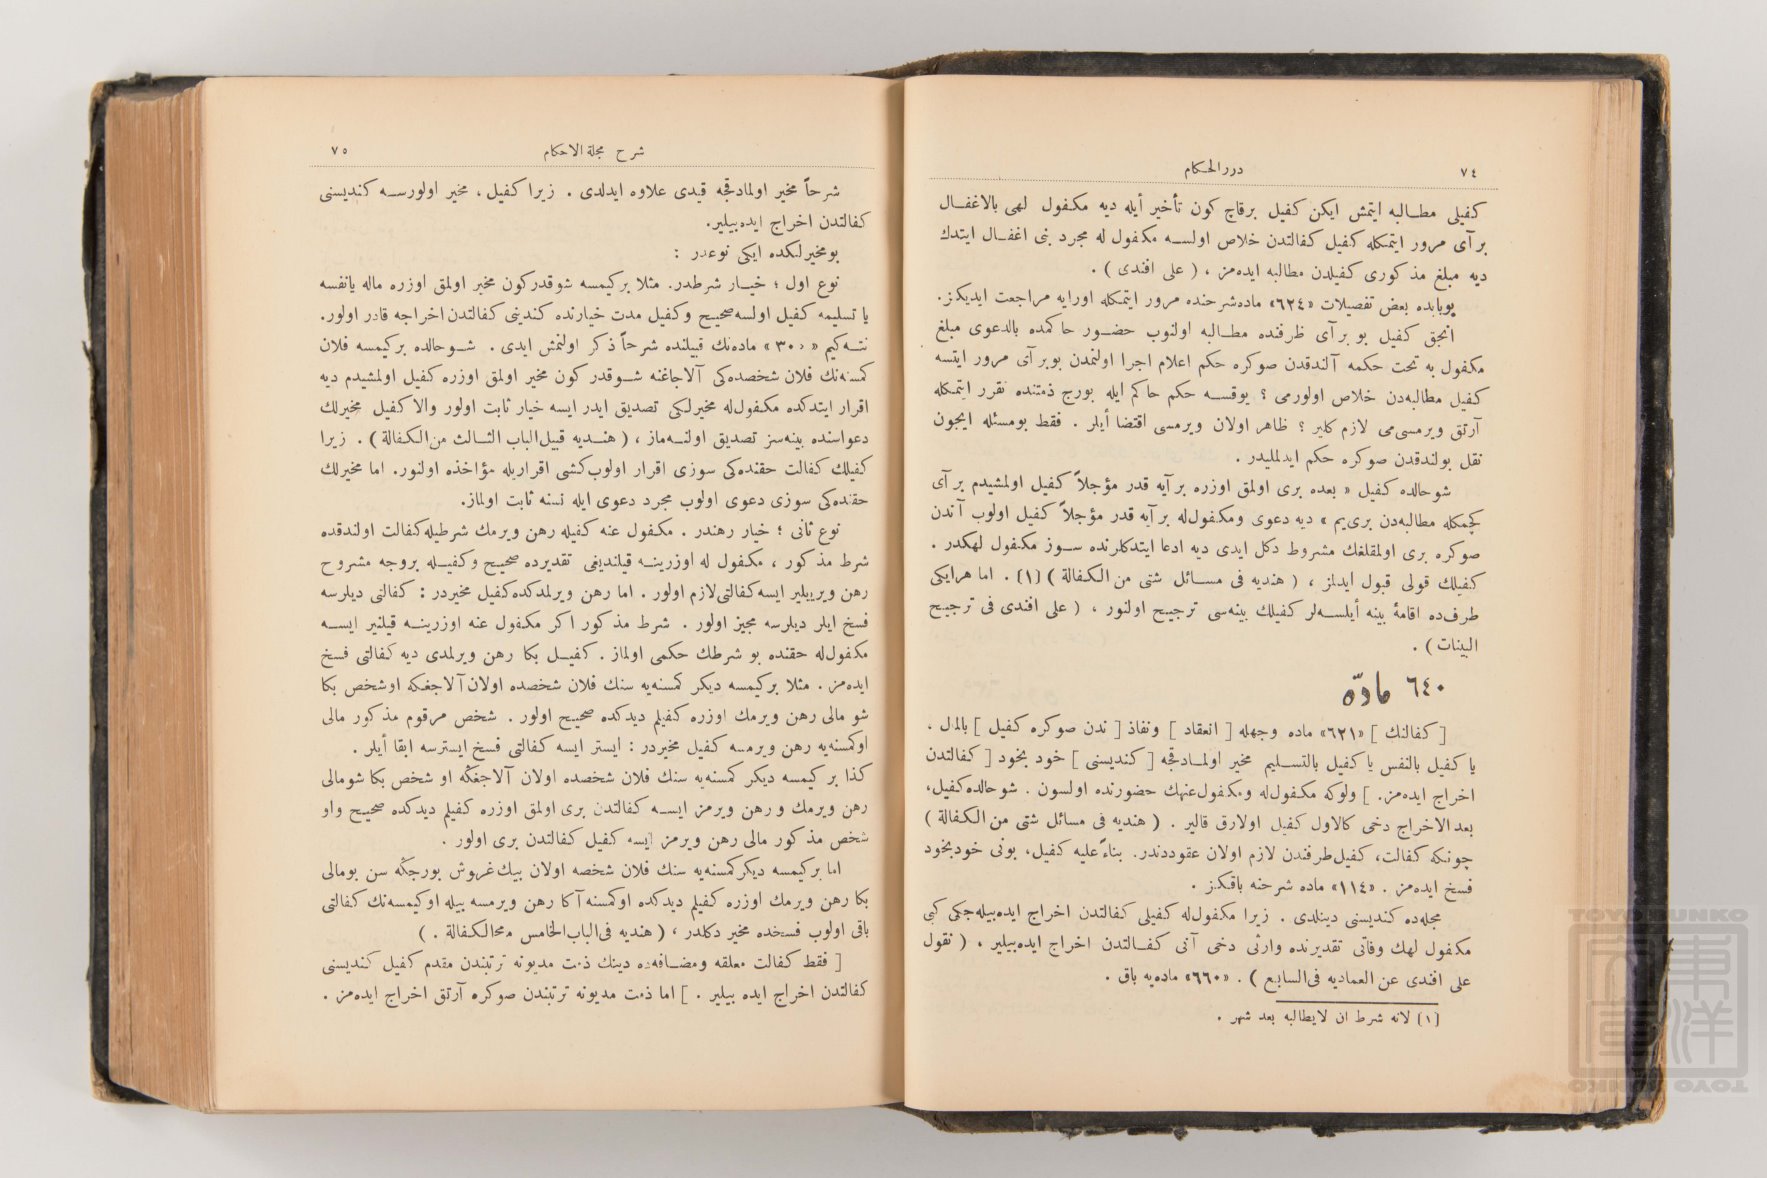 ٧٤
دررالحكام
كفیلی مطـالبه ایتمش ایكن كفیل برقاچ كون تأخیر أیله دیه مكفول لهی بالاغفـال
بر آی مرور ایتمكله كفیل كفالتدن خلاص اولسـه مكفول له مجرد بنی اغفـال ایتدك
دیه مبلغ مذكوری كفیلدن مطالبه ایده‌مز ، ( علی افندی ) .
بوبابده بعض تفصیلات «٦٢٤» ماده‌شرحنده مرور ایتمكله اورایه مراجعت ایدیكز.
انجق كفیل بو بر آی ظرفنده مطـالبه اولنوب حضـور حاكمده بالدعوی مبلغ
مكفول به تحت حكمه آلندقدن صوكره حكم اعلام اجرا اولنمدن بوبر آی مرور ایتسه
كفیل مطالبه‌دن خلاص اولورمی ؟ یوقسـه حكم حاكم ایله بورج ذمتنده تقرر ایتمكله
آرتق ویرمسی‌می لازم كلیر ؟ ظاهر اولان ویرمسی اقتضا أیلر . فقط بومسئله ایچون
نقل بولندقدن صوكره حكم ایدلملیدر .
شو حالده كفیل « بعده بری اولمق اوزره بر آیه قدر مؤجلاً كفیل اولمشیدم بر آی
كچمكله مطالبه‌دن بری‌یم » دیه دعوی ومكفول‌له بر آیه قدر مؤجلاً كفیل اولوب آندن
صوكره بری اولمقلغك مشروط دكل ایدی دیه ادعا ایتدكلرنده سـوز مكفول لهكدر .
كفیلك قولی قبول ایدلمز ، ( هندیه فی مسـائل شتی من الكفالة ) (١) . اما هرایكی
طرف‌ده اقامهٔ بینه أیلسـه‌لر كفیلك بینه‌سی ترجیح اولنور ، ( علی افندی فی ترجیح
البینات ) .
٦٤٠ مادّه
[ كفالتك ] «٦٢١» ماده وجهله [ انعقاد ] ونفاذ [ ندن صوكره كفیل ] بالمال .
یا كفیل بالنفس یا كفیل بالتسـلیم مخیر اولمـادقجه [ كندیسنی ] خود بخود [ كفالتدن
اخراج ایده‌مز. ] ولوكه مكفول‌له ومكفول‌عنهك حضورنده اولسون . شو حالده‌كفیل،
بعد الاخراج دخی كالاول كفیل اولارق قالیر . ( هندیه فی مسائل شتی من الكفالة )
چونكه كفالت، كفیل‌طرفندن لازم اولان عقوددندر. بناءً علیه كفیل، بونی خودبخود
فسخ ایده‌مز . «١١٤» ماده شرحنه باقكز .
مجله‌ده كندیسنی دینلدی . زیرا مكفول‌له كفیلی كفالتدن اخراج ایده‌بیله‌جكی كبی
مكفول لهك وفاتی تقدیرنده وارثی دخی آنی كفـالتدن اخراج ایده‌بیلیر ، ( نقول
علی افندی عن العمادیه فی‌السابع ) . «٦٦٠» ماده‌یه باق .
(١) لانه شرط ان لایطالبه بعد شهر .
شرح مجلة الاحكام
٧٥
شرحاً مخیر اولمادقجه قیدی علاوه ایدلدی . زیرا كفیل ، مخیر اولورسـه كندیسنی
كفالتدن اخراج ایده‌بیلیر.
بومخیرلكده ایكی نوعدر :
نوع اول ؛ خیـار شرطدر. مثلا بركیمسه شوقدركون مخیر اولمق اوزره ماله یانفسه
یا تسلیمه كفیل اولسه‌صحیح وكفیل مدت خیارنده كندینی كفالتدن اخراجه قادر اولور.
نته‌كیم «٣٠٠» ماده‌نك قبیلنده شرحاً ذكر اولنمش ایدی . شـوحالده بركیمسه فلان
كمسنه‌نك فلان شخصده‌كی آلاجاغنه شـوقدر كون مخیر اولمق اوزره كفیل اولمشیدم دیه
اقرار ایتدكده مكفول‌له مخیرلكی تصدیق ایدر ایسه خیار ثابت اولور والا كفیل مخیرلك
دعواسنده بینه‌سز تصدیق اولنـه‌ماز ، ( هنـدیه قبیل‌الباب الثـالث من‌الكفالة ) . زیرا
كفیلك كفالت حقنده‌كی سوزی اقرار اولوب‌كشی اقراریله مؤاخذه اولنور. اما مخیرلك
حقنده‌كی سوزی دعوی اولوب مجرد دعوی ایله نسنه ثابت اولماز.
نوع ثانی ؛ خیار رهندر . مكفول عنه كفیله رهن ویرمك شرطیله‌كفالت اولندقده
شرط مذكور ، مكفول له اوزرینـه قیلندیغی تقدیرده صحیح وكفیـله بروجه مشروح
رهن ویریلیر ایسه‌كفالتی‌لازم اولور . اما رهن ویرلمدكده‌كفیل مخیردر : كفالتی دیلرسه
فسخ ایلر دیلرسه مجیز اولور . شرط مذكور اكر مكفول عنه اوزرینـه قیلنیر ایسـه
مكفول‌له حقنده بو شرطك حكمی اولماز . كفیـل بكا رهن ویرلمدی دیه كفالتی فسخ
ایده‌مز . مثلا بركیمسه دیكر كمسنه‌یه سنك فلان شخصده اولان آلاجغكه اوشخص بكا
شو مالی رهن ویرمك اوزره كفیلم دیدكده صحیح اولور . شخص مرقوم مذكور مالی
اوكمسنه‌یه رهن ویرمسه كفیل مخیردر : ایستر ایسه كفالتی فسخ ایسترسه ابقا أیلر .
كذا بر كیمسه دیكر كمسنه‌یه سنك فلان شخصده اولان آلاجغكه او شخص بكا شومالی
رهن ویرمك و رهن ویرمز ایسـه كفالتدن بری اولمق اوزره كفیلم دیدكده صحیح واو
شخص مذكور مالی رهن ویرمز ایسه كفیل كفالتدن بری اولور .
اما بركیمسه دیكركمسنه‌یه سنك فلان شخصه اولان بیك‌غروش بورجكه سن بومالی
بكا رهن ویرمك اوزره كفیلم دیدكده اوكمسنه آكا رهن ویرمسه بیله اوكیمسه‌نك كفالتی
باقی اولوب فسخده مخیر دكلدر ، ( هندیه فی‌الباب‌الخامس من‌الكفالة . )
[ فقط كفالت معلقه ومضـافه‌ده دینك ذمت مدیونه ترتبندن مقدم كفیل كندیسنی
كفالتدن اخراج ایده بیلیر . ] اما ذمت مدیونه ترتبندن صوكره آرتق اخراج ایده‌مز .
TOYO BUNKO
東洋文庫
TOYO BUNKO